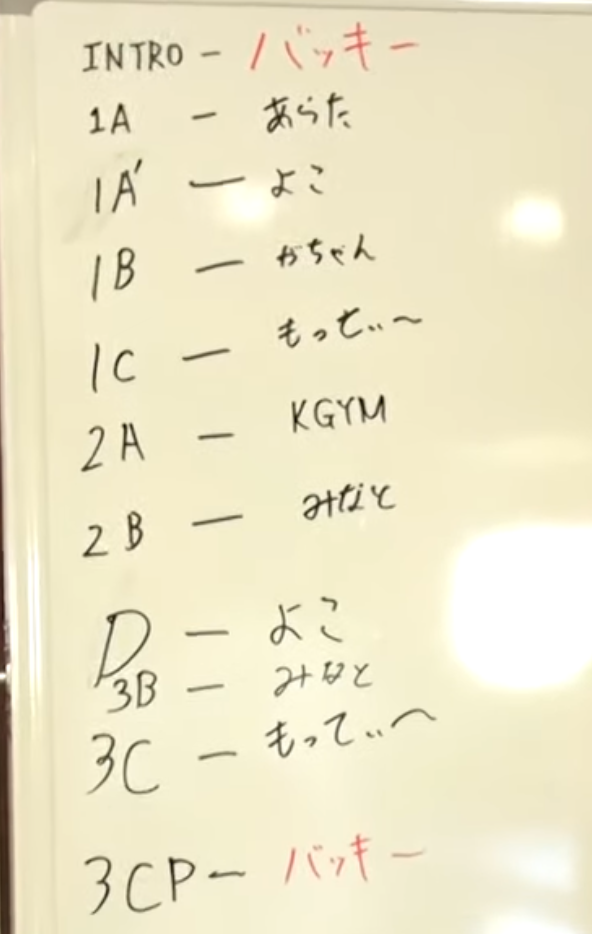 INTRO - バッキー
1A - あらた
1A' - よこ
1B - かちゃん
1C - もってぃ〜
2A - KGYM
2B - みなと
D - よこ
3B - みなと
3C - もってぃ〜
3CP - バッキー